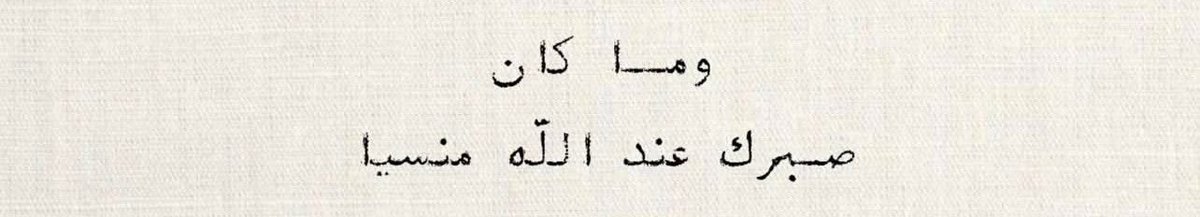 وما كان
صبرك عند اللّه منسيا